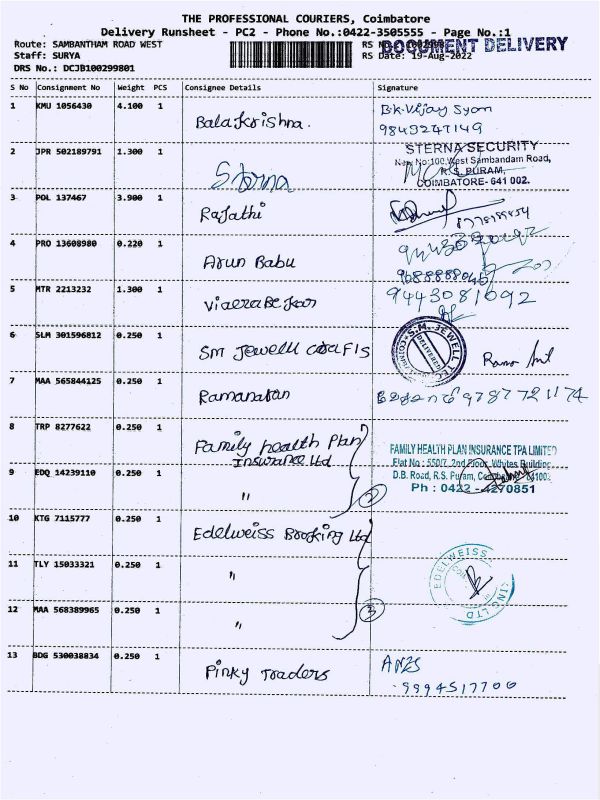 THE PROFESSIONAL COURIERS, Coimbatore
Delivery Runsheet - PC2 - Phone No.:0422-3505555 - Page No.:1
Route: SAMBANTHAM ROAD WEST RS No
DOCUMENT DELIVERY
Staff: SURYA RS Date: 19-Aug-2022
DRS No.: DCJB100299801
S No Consignment No Weight PCS Consignee Details Signature
1 KMU 1056430 4.100 1 Balakrishna. B.K-Vijay Syam
9843247149
2 JPR 502189791 1.300 1 Sterna STERNA SECURITY
New No:100,West Sambandam Road,
R.S. PURAM,
COIMBATORE- 641 002.
3 POL 137467 3.900 1 Rajathi
4 PRO 13608980 0.220 1 Arun Babu
5 MTR 2213232 1.300 1 9443081692
6 SLM 301596812 0.250 1 SM Jewell S.M. JEWELL TEC
DELIVERED
7 MAA 565844125 0.250 1 Ramanatan 9787721174
8 TRP 8277622 0.250 1 Family health Plan
Insurance Ltd
FAMILY HEALTH PLAN INSURANCE TPA LIMITED
Flat No : 550/7, 2nd Floor, Whites Building
D.B. Road, R.S. Puram,
Ph : 0422 - 4270851
9 EDQ 14239110 0.250 1 " 2
10 KTG 7115777 0.250 1 Edelweiss Broking Ltd
11 TLY 15033321 0.250 1 " EDELWEISS
KING LTD
12 MAA 568389965 0.250 1 " 3
13 BDG 530038834 0.250 1 Pinky Traders
9994517700